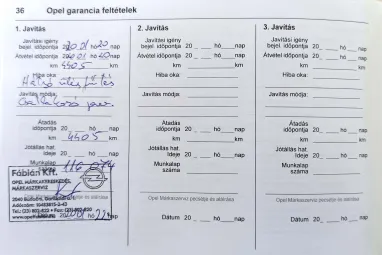 36 Opel garancia feltételek
1. Javítás
Javítási igény
bejel. időpontja 20 01 hó 20 nap
Átvétel időpontja 20 01 hó 20 nap
km 4405 km
Hiba oka:
Hátsó ülés fűtés
Javítás módja:
Csatlakozó jav.
Átadás
időpontja 20 hó nap
km 4405 km
Jótállás hat.
ideje 20 hó nap
Munkalap
száma 116 074
Fábián Kft.
OPEL MÁRKAKERESKEDÉS,
MÁRKASZERVIZ
2040 Budaörs,
hó 22 nap
2. Javítás
Javítási igény
bejel. időpontja 20 hó nap
Átvétel időpontja 20 hó nap
km km
Hiba oka:
Javítás módja:
Átadás
időpontja 20 hó nap
km km
Jótállás hat.
ideje 20 hó nap
Munkalap
száma
Opel Márkaszerviz pecsétje és aláírása
Dátum 20 hó nap
3. Javítás
Javítási igény
bejel. időpontja 20 hó nap
Átvétel időpontja 20 hó nap
km km
Hiba oka:
Javítás módja:
Átadás
időpontja 20 hó nap
km km
Jótállás hat.
ideje 20 hó nap
Munkalap
száma
Opel Márkaszerviz pecsétje és aláírása
Dátum 20 hó nap